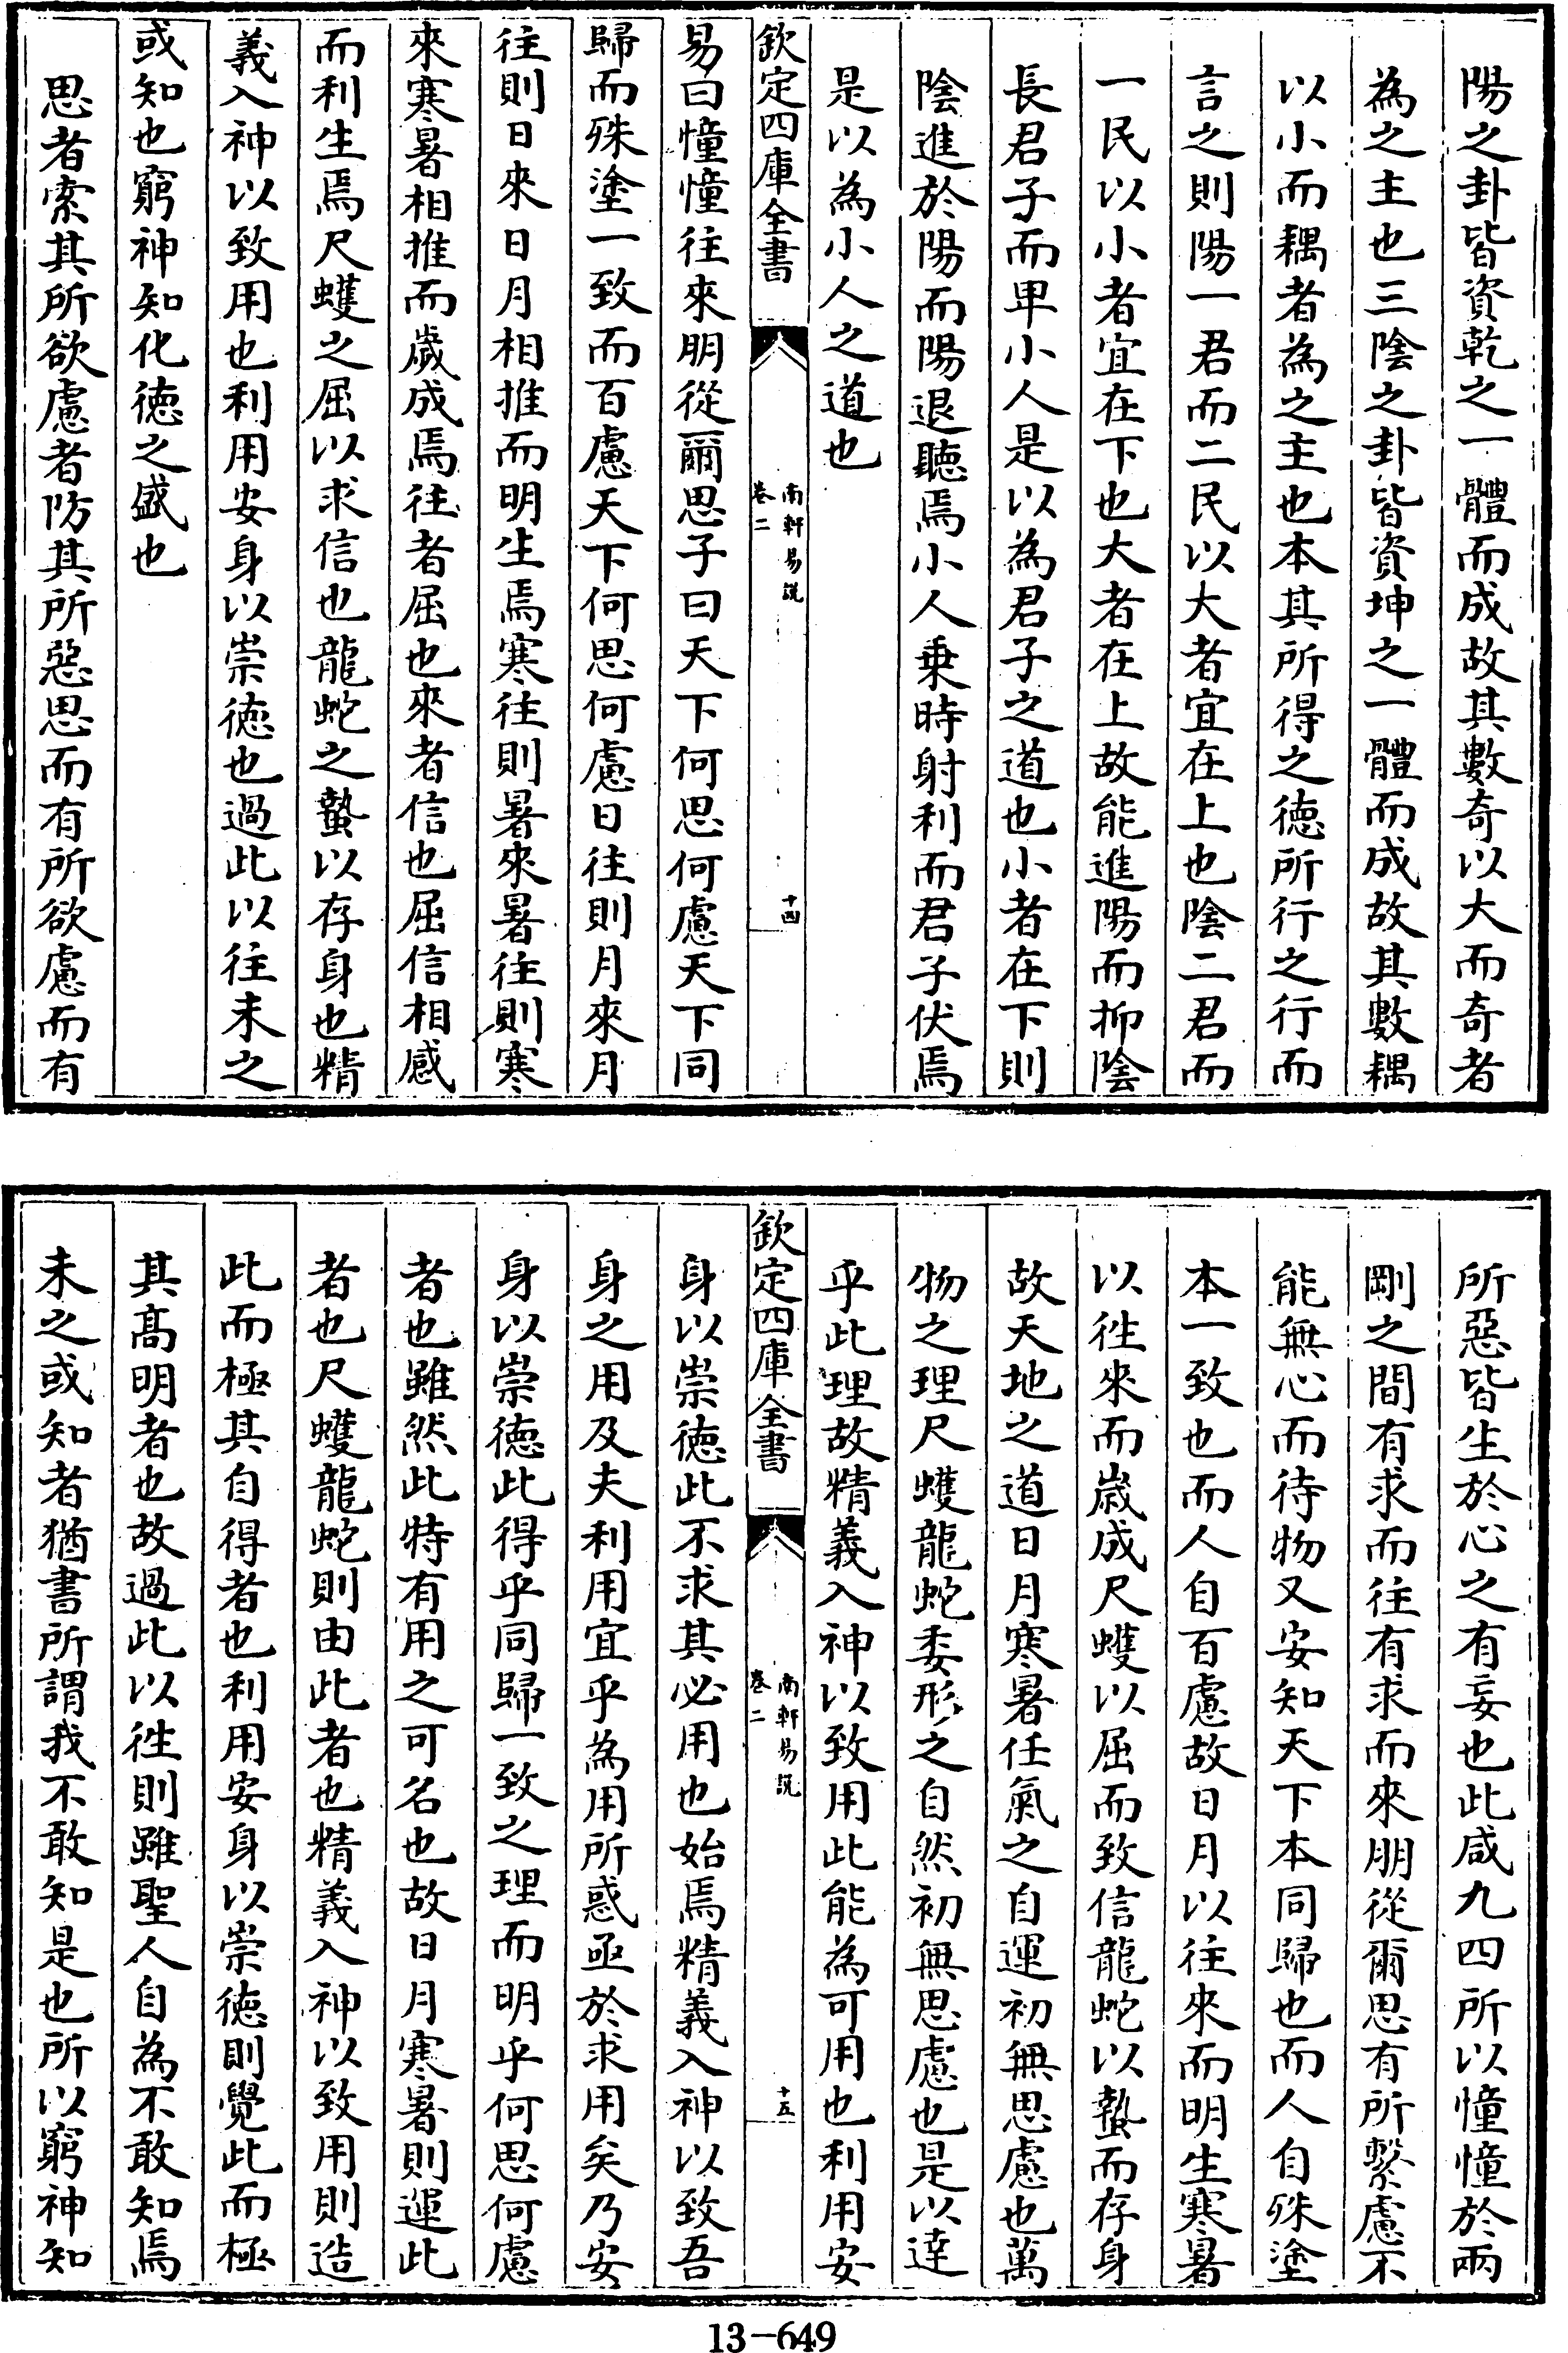 陽之卦皆資乾之一體而成故其數奇以大而奇者
為之主也三陰之卦皆資坤之一體而成故其數耦
以小而耦者為之主也本其所得之徳所行之行而
言之則陽一君而二民以大者宜在上也陰二君而
一民以小者宜在下也大者在上故能進陽而抑陰
長君子而卑小人是以為君子之道也小者在下則
陰進於陽而陽退聽焉小人乗時射利而君子伏焉
是以為小人之道也
欽定四庫全書
南軒易說
卷二
十四
易曰憧憧往來朋從爾思子曰天下何思何慮天下同
歸而殊塗一致而百慮天下何思何慮日往則月來月
往則日來日月相推而明生焉寒往則暑來暑往則寒
來寒暑相推而歲成焉往者屈也來者信也屈信相感
而利生焉尺蠖之屈以求信也龍蛇之蟄以存身也精
義入神以致用也利用安身以崇徳也過此以往未之
或知也窮神知化徳之盛也
思者索其所欲慮者防其所惡思而有所欲慮而有
所惡皆生於心之有妄也此咸九四所以憧憧於兩
剛之間有求而往有求而來朋從爾思有所繫慮不
能無心而待物又安知天下本同歸也而人自殊塗
本一致也而人自百慮故日月以往來而明生寒暑
以徃來而歲成尺蠖以屈而致信龍蛇以蟄而存身
故天地之道日月寒暑任氣之自運初無思慮也萬
物之理尺蠖龍蛇委形之自然初無思慮也是以達
乎此理故精義入神以致用此能為可用也利用安
欽定四庫全書
南軒易說
卷二
十五
身以崇徳此不求其必用也始焉精義入神以致吾
身之用及夫利用宜乎為用所惑亟於求用矣乃安
身以崇徳此得乎同歸一致之理而明乎何思何慮
者也雖然此特有用之可名也故日月寒暑則運此
者也尺蠖龍蛇則由此者也精義入神以致用則造
此而極其自得者也利用安身以崇徳則覺此而極
其髙明者也故過此以徃則雖聖人自為不敢知焉
未之或知者猶書所謂我不敢知是也所以窮神知
13-649